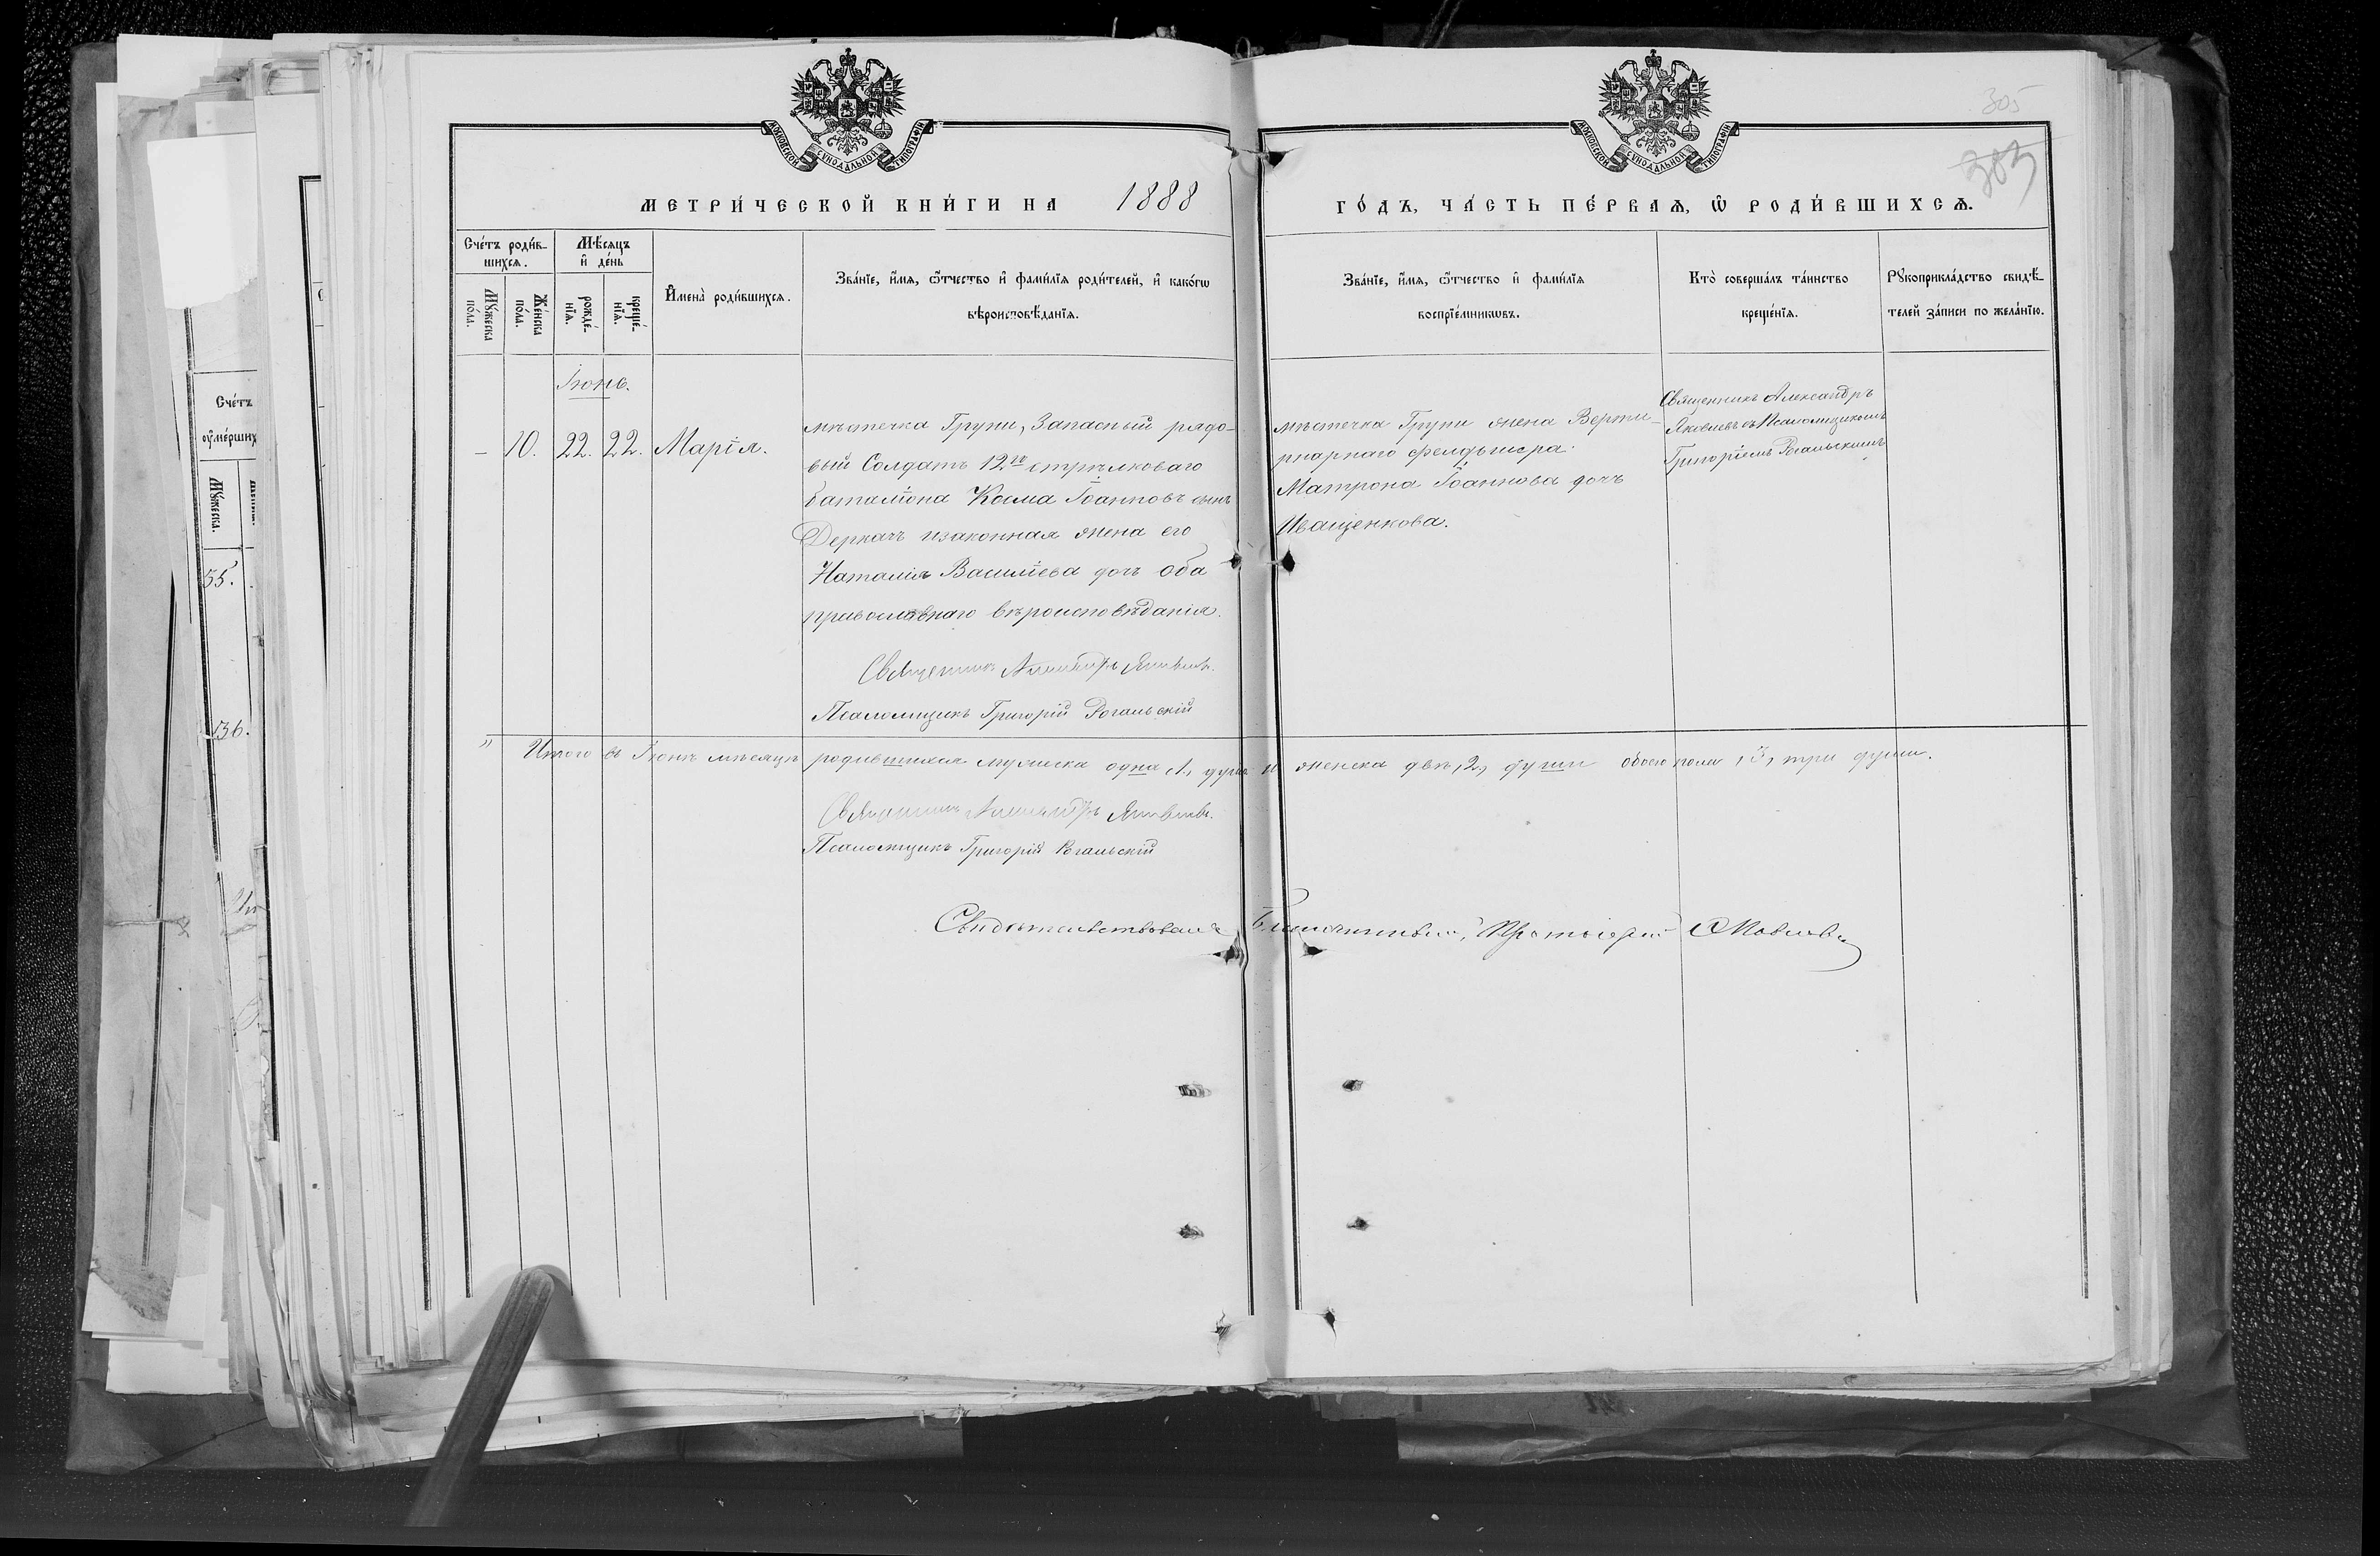 305
303
МОСКОВСКОЙ СѴНОДАЛЬНОЙ ТИПОГРАФІИ
МОСКОВСКОЙ СѴНОДАЛЬНОЙ ТИПОГРАФІИ
МЕТРИ́ЧЕСКОЙ КНИ́ГИ НА 1888 ГО́ДЪ, ЧА́СТЬ ПЕ́РВАѦ, Ѽ РОДИ́ВШИХСѦ.
Сче́тъ роди́в-
шихсѧ.
Мѣ́сѧцъ
и҆ де́нь
Мꙋ́жеска
по́ла.
Же́нска
по́ла.
рожде́-
нїѧ.
креще́-
нїѧ.
И҆мена̀ роди́вшихсѧ.
Зва́нїе, и҆́мѧ, ѻ҆́тчество и҆ фами́лїѧ роди́телей, и҆ како́гѡ
вѣроисповѣ́данїѧ.
Зва́нїе, и҆́мѧ, ѻ҆́тчество и҆ фами́лїѧ
воспрїе́мникѡвъ.
Кто̀ соверша́лъ та́инство
креще́нїѧ.
Рꙋкоприкла́дство свидѣ́-
телей за́писи по жела́нїю.
Іюнь.
– 10. 22. 22. Марія.
мѣстечка Груни, Запасный рядо-
вый Солдатъ 12го стрѣлковаго
баталіона Косма Іоанновъ сынъ
Деркачъ изаконная жена его
Наталія Василіева дочъ оба
православнаго вѣроисповѣданія.
Священникъ Александръ Яковлевъ.
Псаломщикъ Григорій Рогальскій
мѣстечка Груни жена Верти-
рнарнаго фелдьшера
Матрона Іоаннова дочъ
Иващенкова.
Священникъ Александръ
Яковлевъ съ Псаломщикомъ
Григоріемъ Рогальскимъ
" Итого въ Іюнѣ мѣсяцѣ родившихся мужеска одна 1, душа и женска двѣ, 2, души обоего пола, 3, три души.
Священникъ Александръ Яковлевъ.
Псаломщикъ Григорій Рогальскій
Свидѣтельствовалъ Благочинный, Протоіерей
Сче́тъ
ᲂу҆ме́рших
Мꙋ́жеска.
35.
36.